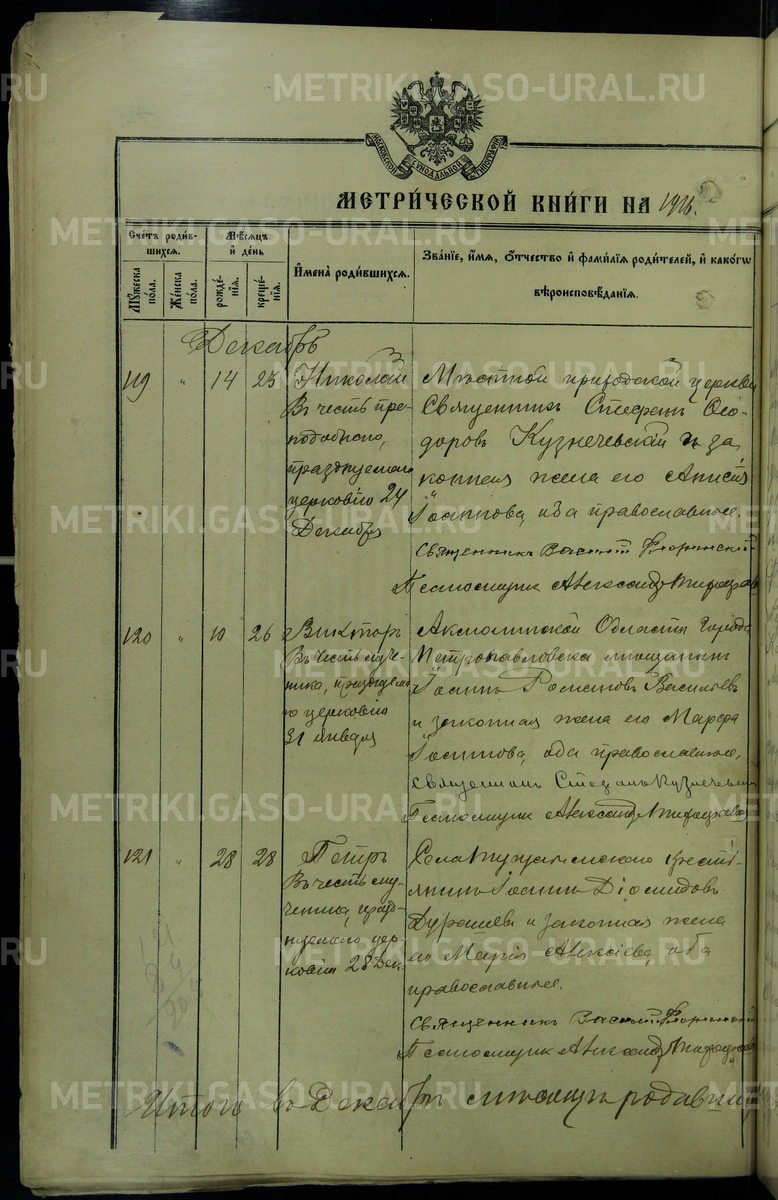 METRIKI.GASO-URAL.RU
МОСКОВСКОЙ СѴНОДАЛЬНОЙ ТИПОГРАФІИ
МЕТРИ́ЧЕСКОЙ КНИ́ГИ НА 1916.
Сче́тъ роди́в-
шихся.
Му́жеска по́ла.
Же́нска по́ла.
Мѣ́сяцъ и́ де́нь
рожде́нія.
креще́нія.
И́мена̀ роди́вшихся.
Зва́ніе, и́мя, о́тчество и́ фами́лія роди́телей, и́ како́гѡ
вѣроисповѣ́данія.
Декабрь
119 " 14 25 Николай
Въ честь пре-
подобнаго,
празднуемаго
церковію 24
Декабря
Мѣстной приходской церкви
Священникъ Стефанъ Ѳео-
доровъ Кузнечевскій и за
конная жена его Анисія
Іоаннова, оба православные.
Священникъ Василій Флоринскій
Псаломщикъ Александръ
120 " 10 26 Викторъ
Въ честь муче-
ника, празднуема-
го церковію
31 января
Акмолинской Области Города
Петропавловска мѣщанинъ
Іоаннъ Романовъ Васильевъ
и законная жена его Марѳа
Іоаннова, оба православные,
Священникъ Стефанъ Кузнечевскій
Псаломщикъ Александръ
121 " 28 28 Петръ
Въ честь му-
ченика, празд-
нуемаго цер-
ковію 28 Дек.
Села крестья-
нинъ Іоаннъ Діомидовъ
и законная жена
его Марія Алексѣева, оба
православные.
Священникъ Василій Флоринскій
Псаломщикъ Александръ
Итого въ Декабрѣ мѣсяцѣ родивших